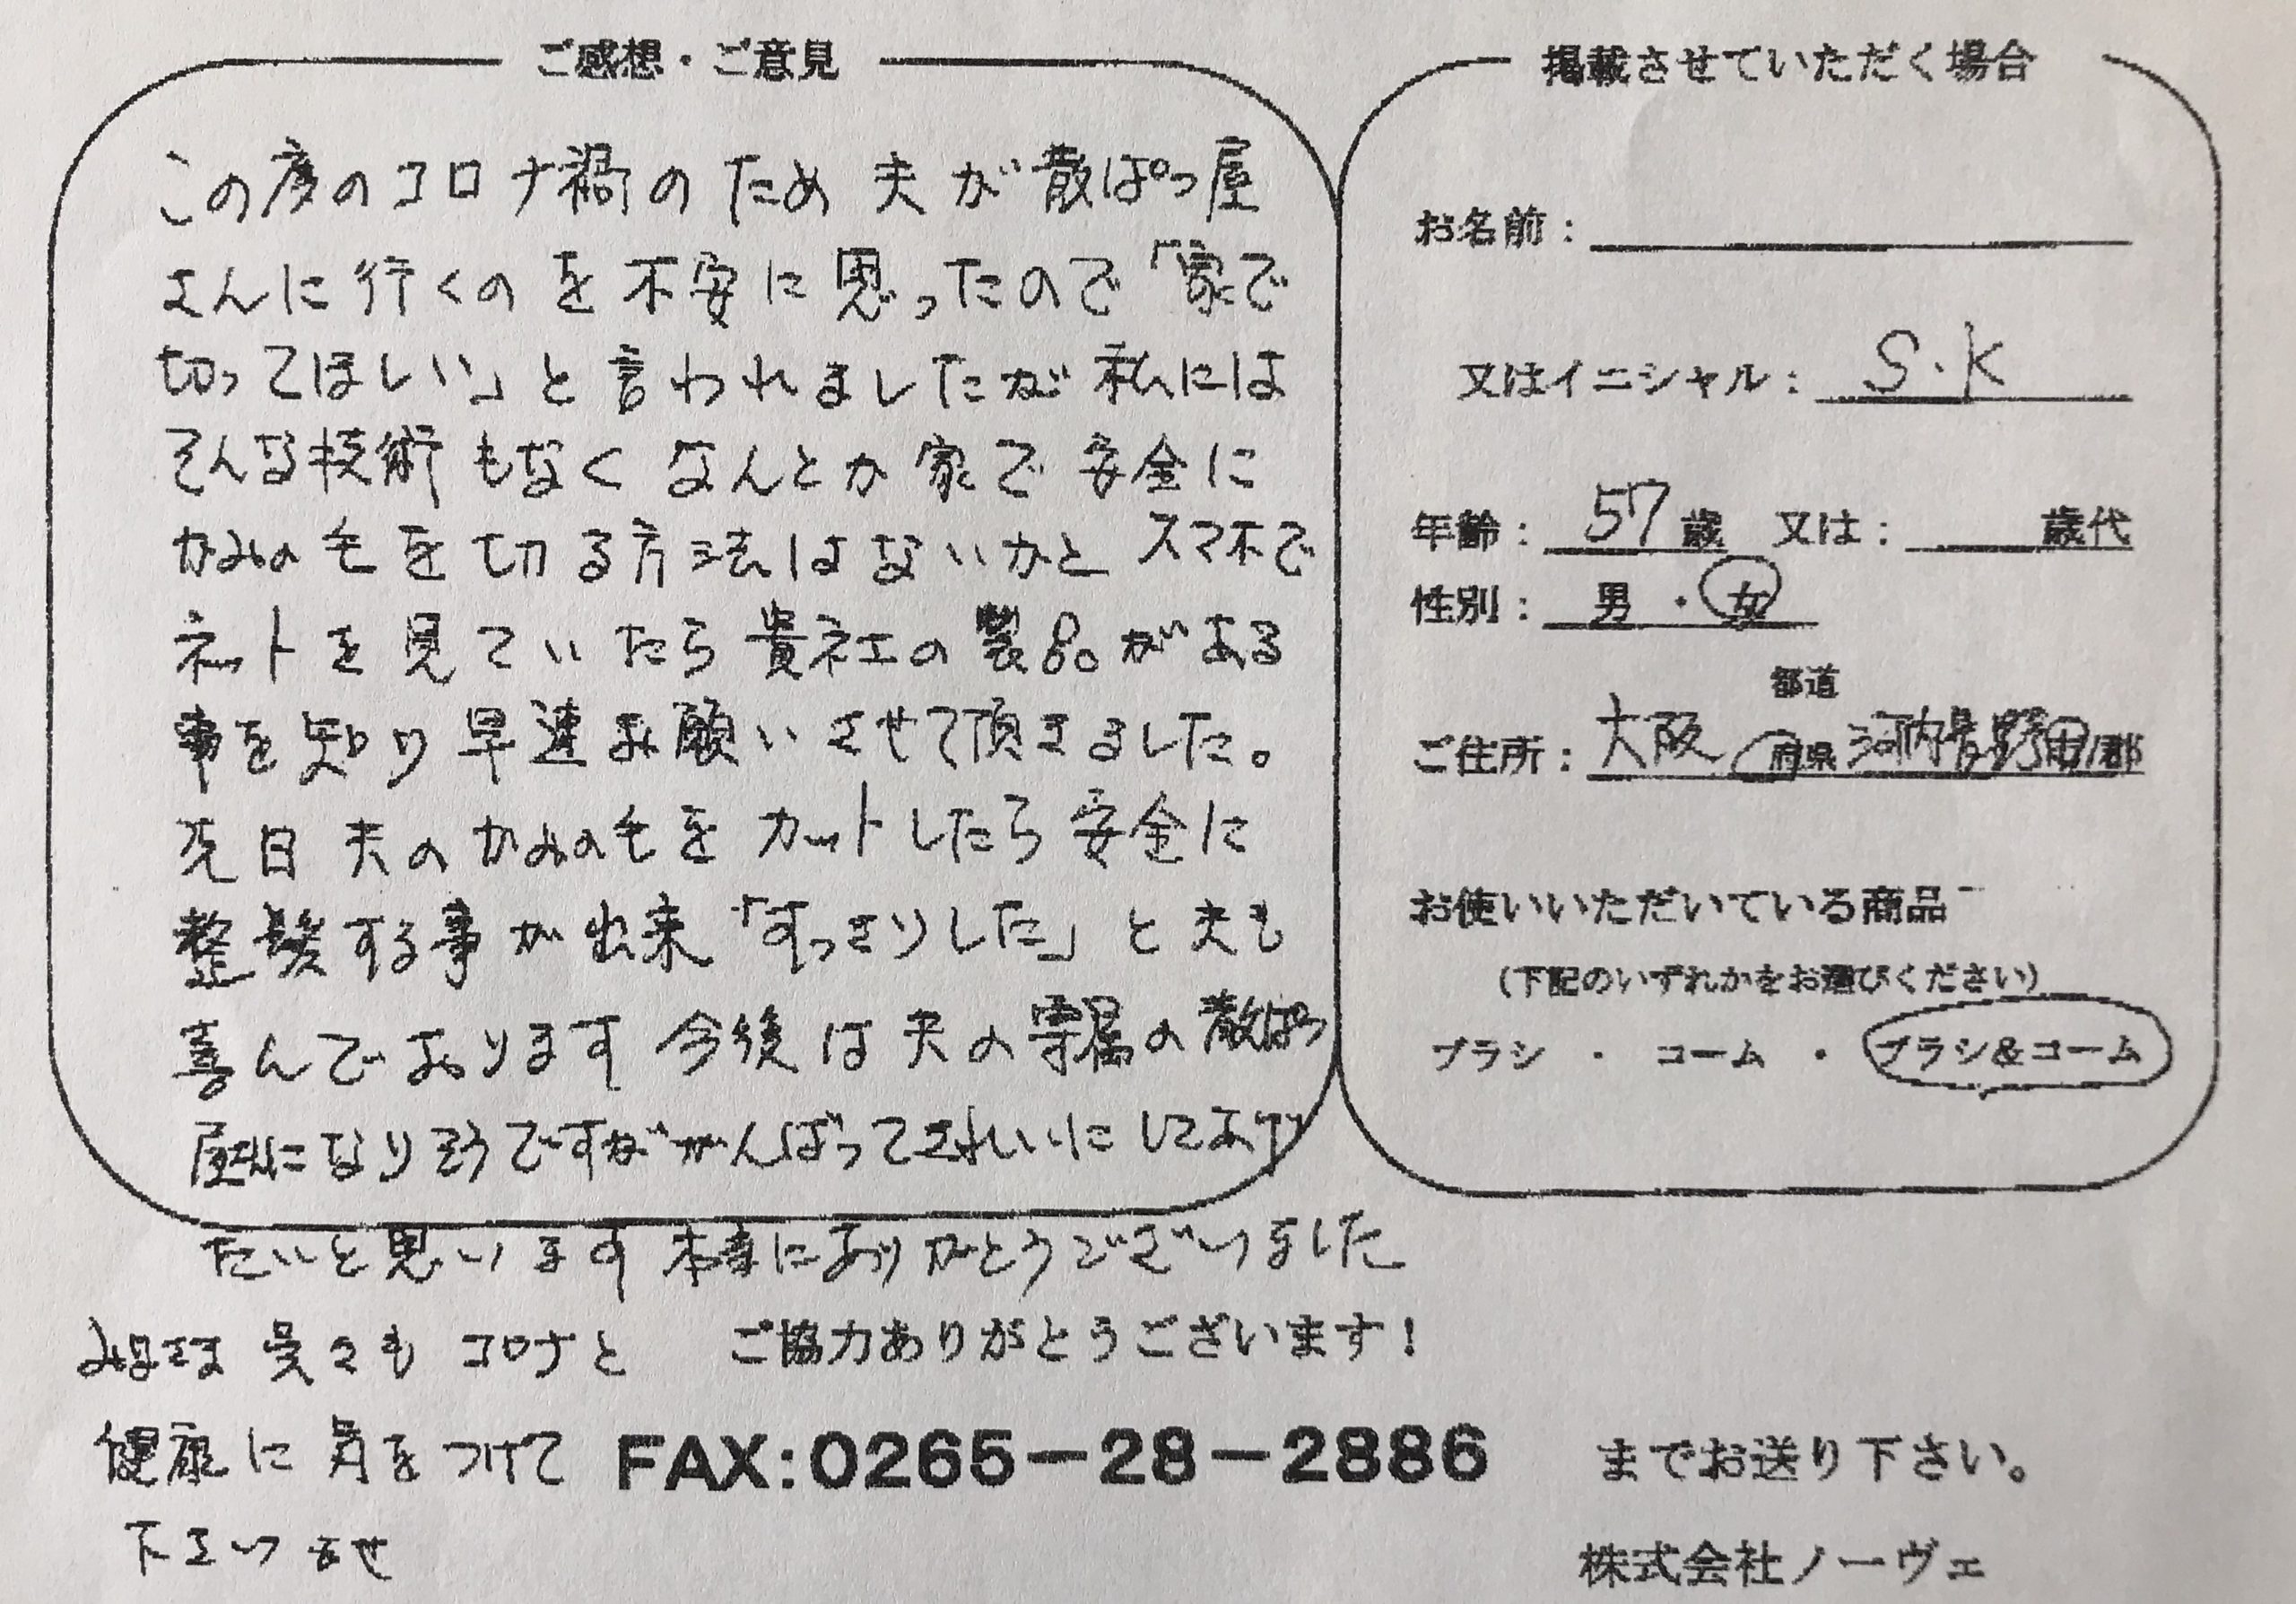 ご感想・ご意見
この度のコロナ禍のため 夫が散ぱつ屋
さんに行くのを不安に思ったので「家で
切ってほしい」と言われましたが 私には
そんな技術もなく なんとか家で安全に
かみの毛を切る方法はないかと スマホで
ネットを見ていたら貴社の製品がある
事を知り早速お願いさせて頂きました。
先日 夫のかみの毛をカットしたら安全に
整髪する事が出来「すっきりした」と夫も
喜んでおります 今後は夫の専属の散ぱつ
屋さんになりそうですががんばってきれいにしてあげ
たいと思います 本当にありがとうございました
みなさま 呉々も コロナと
健康に気をつけて
下さいませ
掲載させていただく場合
お名前：
又はイニシャル： S.K
年齢： 57 歳 又は： 歳代
性別： 男 ・ 女
都道
ご住所： 大阪 府県 河内長野 市/郡
お使いいただいている商品
（下記のいずれかをお選びください）
ブラシ ・ コーム ・ ブラシ&コーム
ご協力ありがとうございます！
FAX:0265-28-2886 までお送り下さい。
株式会社ノーヴェ